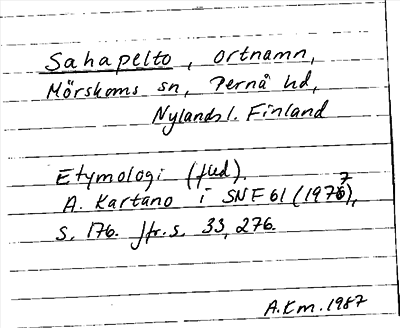 Sahapelto, ortnamn,
Mörskoms sn, Pernå hd,
Nylands l. Finland
Etymologi (fud).
A. Kartano i SNF 61 (1977),
s. 176. Jfr. s. 33, 276.
A.Km. 1987